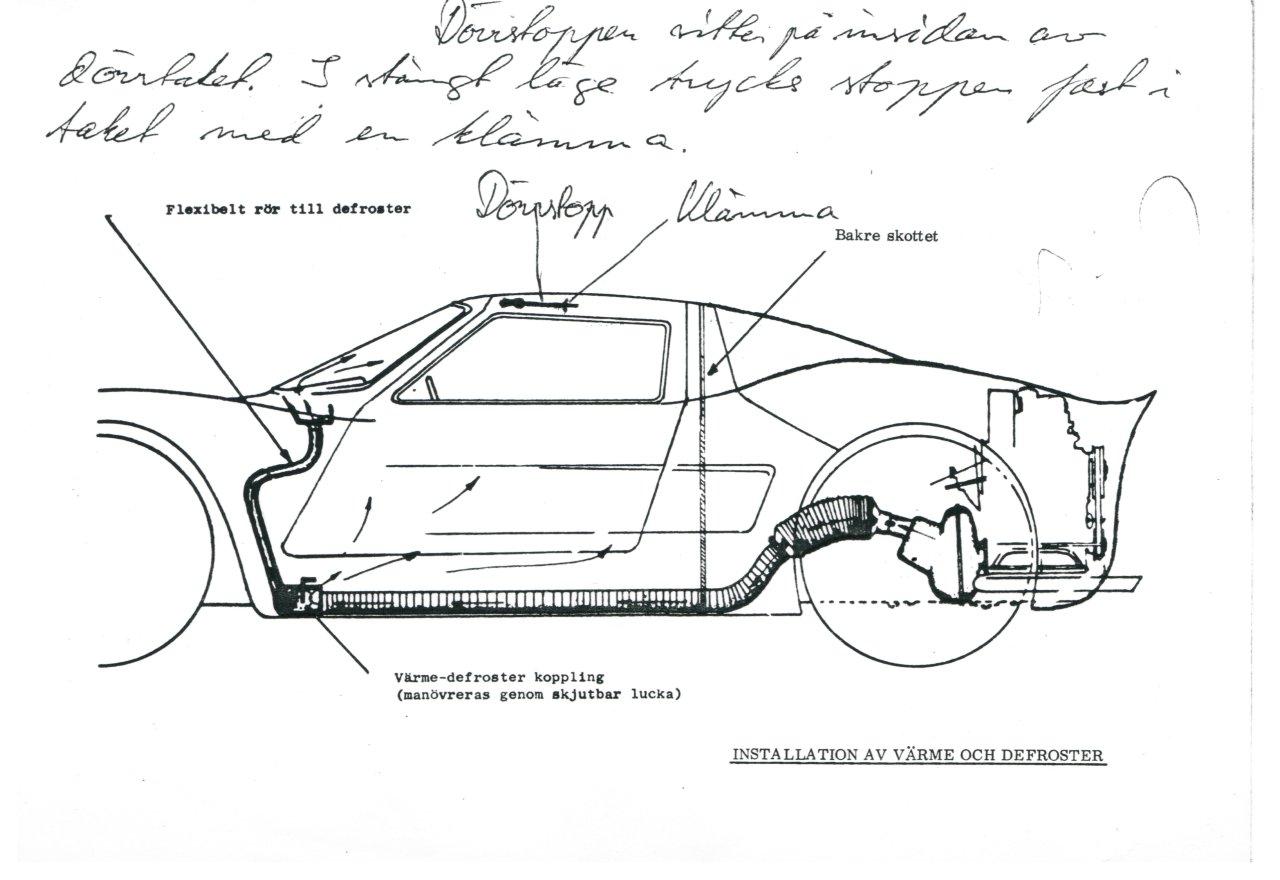 Dörrstoppen sitter på insidan av
dörrtaket. I stängt läge trycks stoppen fast i
taket med en klämma.
Dörrstopp Klämma
Flexibelt rör till defroster
Bakre skottet
Värme-defroster koppling
(manövreras genom skjutbar lucka)
INSTALLATION AV VÄRME OCH DEFROSTER